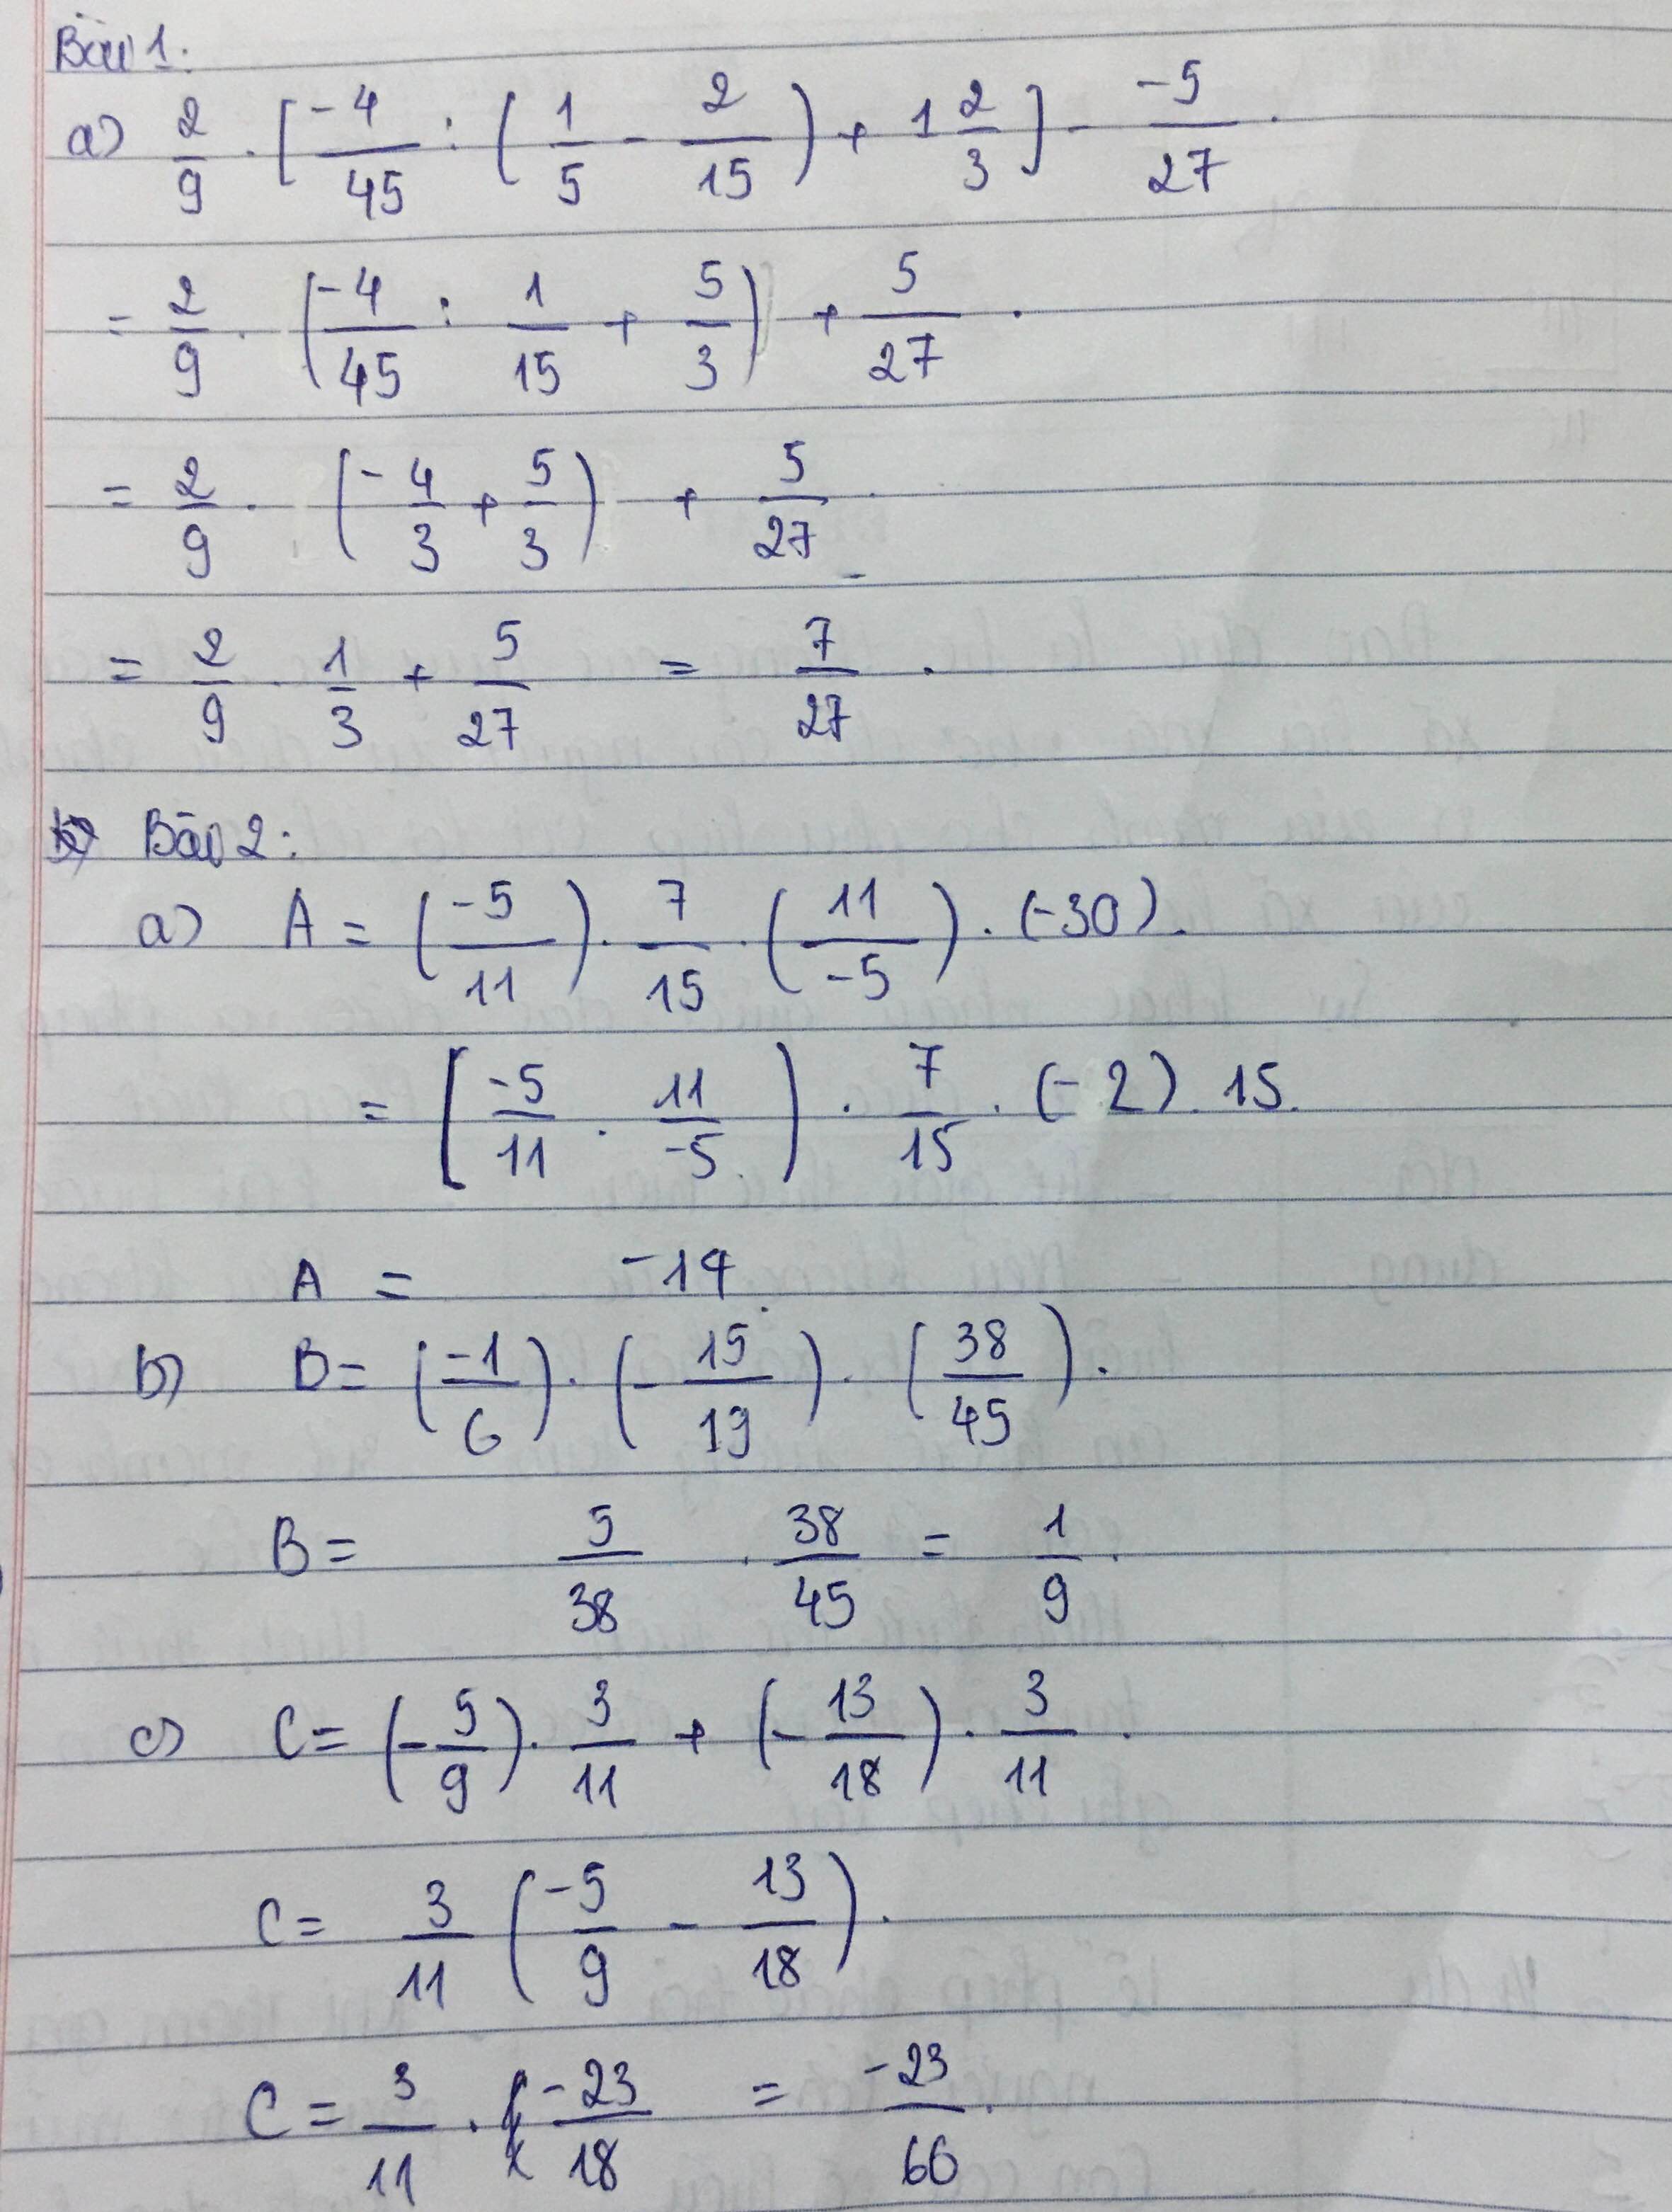 Bài 1:
a) 2/9 . [-4/45 : (1/5 - 2/15) + 1 2/3] - -5/27 .
= 2/9 . (-4/45 : 1/15 + 5/3) + 5/27 .
= 2/9 . (-4/3 + 5/3) + 5/27 .
= 2/9 . 1/3 + 5/27 = 7/27 .
Bài 2:
a) A = (-5/11) . 7/15 . (11/-5) . (-30) .
= [-5/11 . 11/-5) . 7/15 . (-2) . 15 .
A = -14 .
b) B = (-1/6) . (-15/19) . (38/45) .
B = 5/38 . 38/45 = 1/9 .
c) C = (-5/9) . 3/11 + (-13/18) . 3/11 .
C = 3/11 (-5/9 - 13/18) .
C = 3/11 . -23/18 = -23/66 .